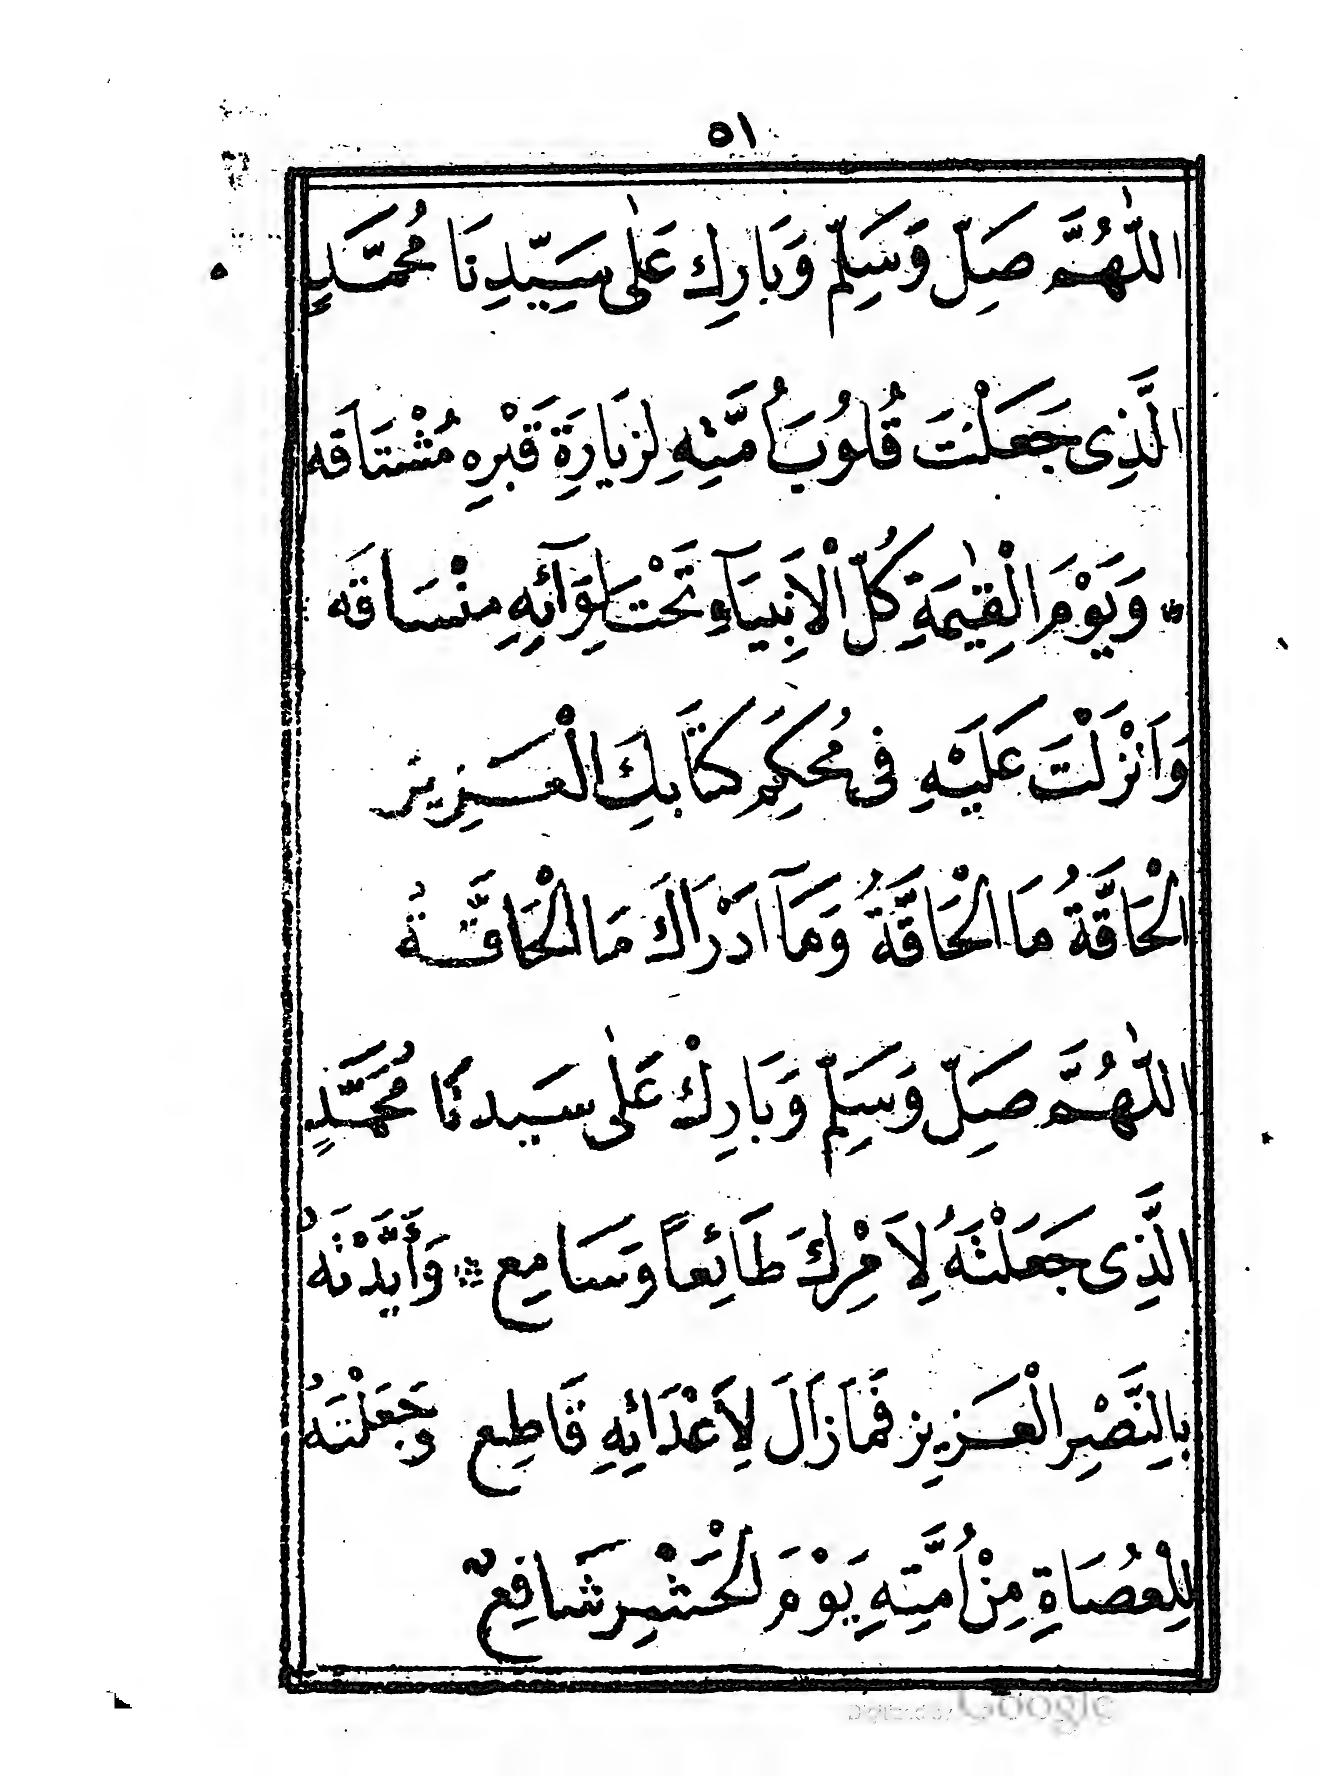 ٥١
اللّٰهُمَّ صَلِّ وَسَلِّمْ وَبَارِكْ عَلٰى سَيِّدِنَا مُحَمَّدٍ
الَّذِى جَعَلْتَ قُلُوبَ اُمَّتِهِ لِزِيَارَةِ قَبْرِهِ مُشْتَاقَه
وَيَوْمَ الْقِيٰمَةِ كُلُّ الْاَنْبِيَآءِ تَحْتَ لِوَآئِهِ مُنْسَاقَه
وَاَنْزَلْتَ عَلَيْهِ فِى مُحْكَمِ كِتَابِكَ الْعَزِيزِ
الْحَاقَّةُ مَا الْحَاقَّةُ وَمَآ اَدْرَاكَ مَا الْحَاقَّةُ
اللّٰهُمَّ صَلِّ وَسَلِّمْ وَبَارِكْ عَلٰى سَيِدِنَا مُحَمَّدٍ
الَّذِى جَعَلْتَهُ لِاَمْرِكَ طَائِعاً وَسَامِع وَأَيَّدْتَهُ
بِالنَّصْرِ الْعَزِيزِ فَمَازَالَ لِاَعْدَائِهِ قَاطِع وَجَعَلْتَهُ
لِلْعُصَاةِ مِنْ اُمَّتِهِ يَوْمَ الْحَشْرِ شَافِعٌ
Digitized by Google